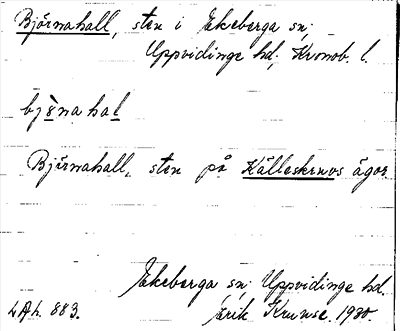 Björnahall, sten i Ekeberga sn;
Uppvidinge hd; Kronob. l.
bj8̀na hal
Björnahall, sten på Källeskruvs ägor
Ekeberga sn; Uppvidinge hd.
LAL. 883. Erik Krunse. 1930.